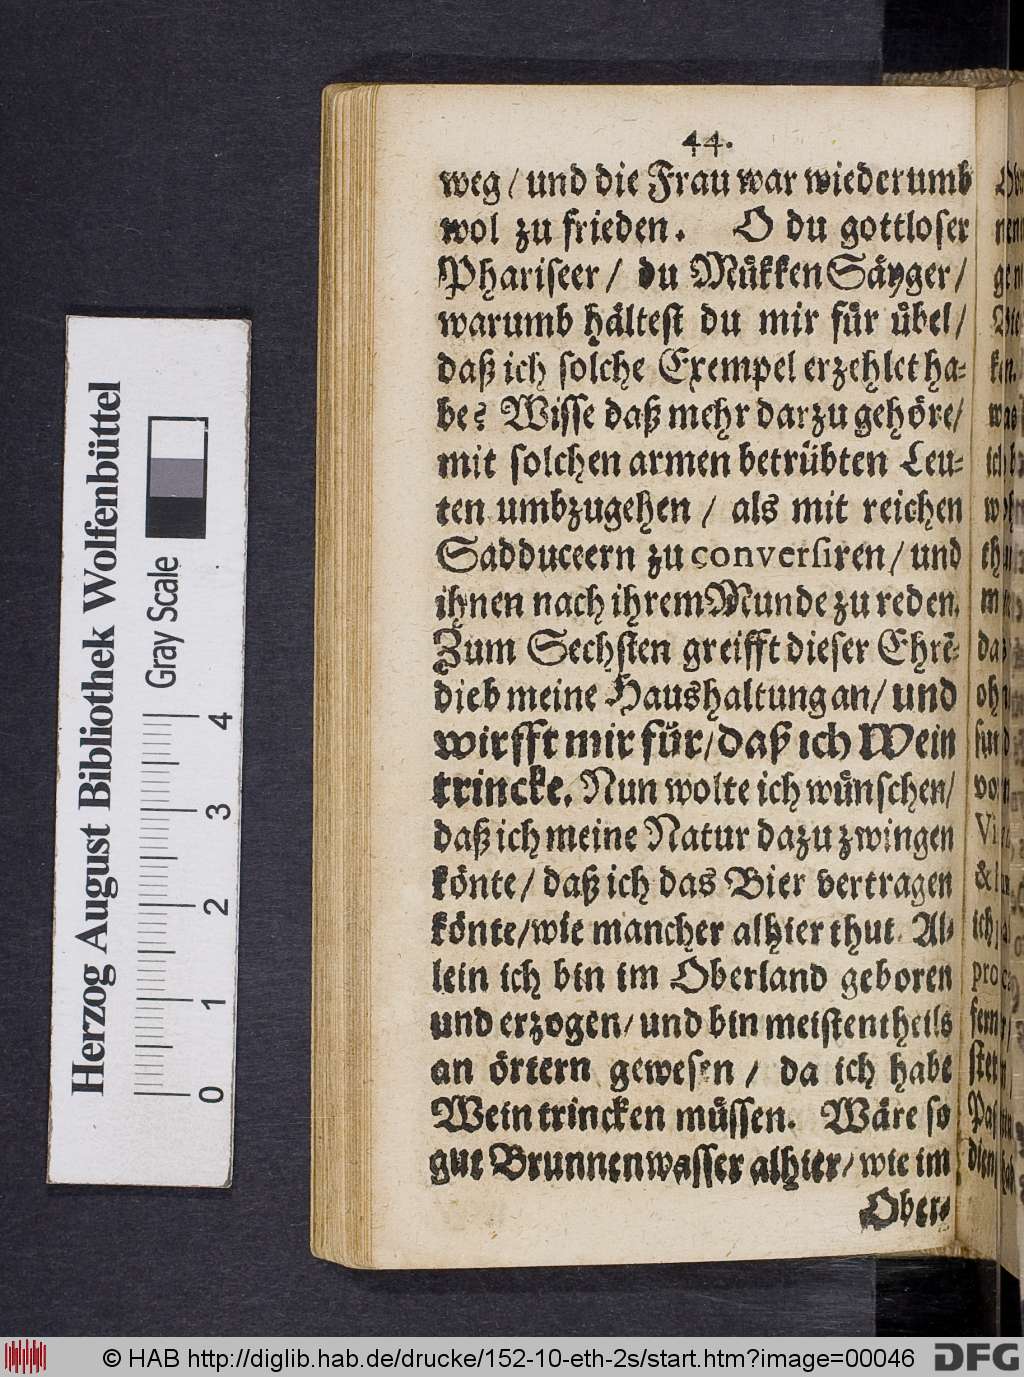 44.
weg / und die Frau war wiederumb
wol zu frieden. O du gottloser
Phariseer / du Mükken Säyger /
warumb hältest du mir für übel /
daß ich solche Exempel erzehlet ha-
be? Wisse daß mehr darzu gehöre /
mit solchen armen betrübten Leu-
ten umbzugehen / als mit reichen
Sadduceern zu conversiren / und
ihnen nach ihrem Munde zu reden.
Zum Sechsten greifft dieser Ehrē-
dieb meine Haushaltung an / und
wirfft mir für / daß ich Wein
trincke. Nun wolte ich wünschen /
daß ich meine Natur dazu zwingen
könte / daß ich das Bier vertragen
könte / wie mancher alhier thut. Al-
lein ich bin im Oberland geboren
und erzogen / und bin meistentheils
an örtern gewesen / da ich habe
Wein trincken müssen. Wäre so
gut Brunnenwasser alhier / wie im
Ober-
Herzog August Bibliothek Wolfenbüttel
Gray Scale
0 1 2 3 4
© HAB http://diglib.hab.de/drucke/152-10-eth-2s/start.htm?image=00046
DFG